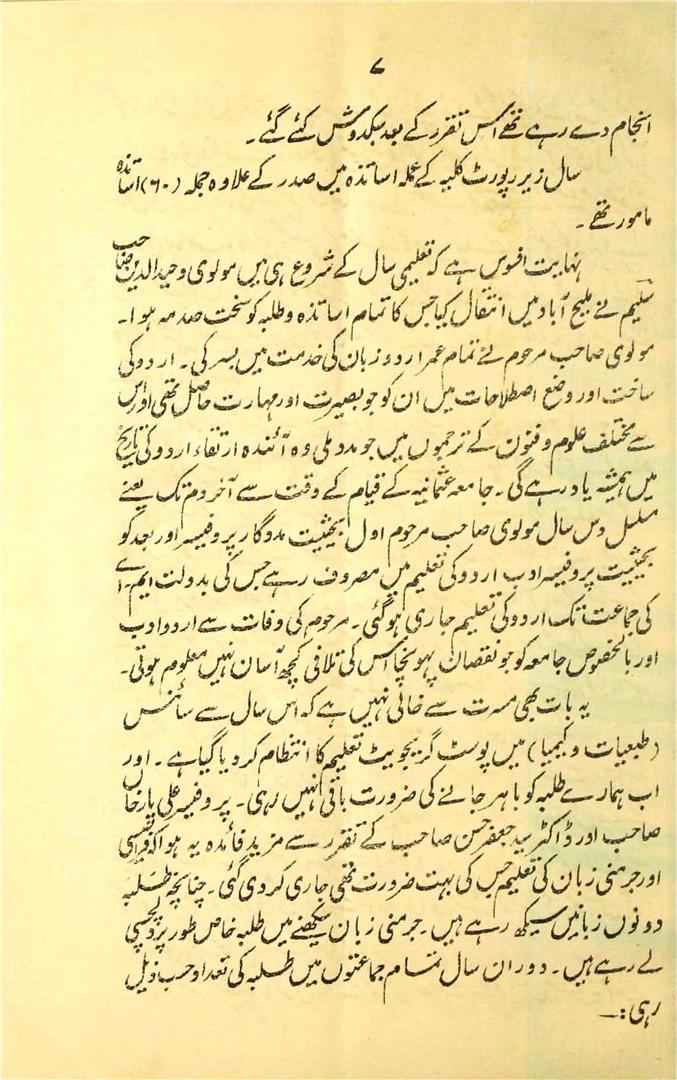 ۷
انجام دے رہے تھے اس تقرر کے بعد سبکدوش کئے گئے۔
سال زیر رپورٹ کلیہ کے عملہ اساتذہ میں صدر کے علاوہ جملہ (۶۰) اساتذہ
مامور تھے۔
نہایت افسوس ہے کہ تعلیمی سال کے شروع ہی میں مولوی وحید الدین صاحب
سلیم نے ملیح آباد میں انتقال کیا جس کا تمام اساتذہ و طلبہ کو سخت صدمہ ہوا۔
مولوی صاحب مرحوم نے تمام عمر اردو زبان کی خدمت میں بسر کی۔ اردو کی
ساخت اور وضع اصطلاحات میں ان کو جو بصیرت اور مہارت حاصل تھی اور اس
سے مختلف علوم و فنون کے ترجموں میں جو مدد ملی وہ آئندہ ارتقاء اردو کی تاریخ
میں ہمیشہ یاد رہے گی۔ جامعہ عثمانیہ کے قیام کے وقت سے آخر دم تک یعنے
مسلسل دس سال مولوی صاحب مرحوم اول بحیثیت مددگار پروفیسر اور بعد کو
بحیثیت پروفیسر ادب اردو کی تعلیم میں مصروف رہے جس کی بدولت ایم۔اے
کی جماعت تک اردو کی تعلیم جاری ہو گئی۔ مرحوم کی وفات سے اردو ادب
اور بالخصوص جامعہ کو جو نقصان پہونچا اس کی تلافی کچھ آسان نہیں معلوم ہوتی۔
یہ بات بھی مسرت سے خالی نہیں ہے کہ اس سال سے سائنس
(طبعیات و کیمیا) میں پوسٹ گریجویٹ تعلیم کا انتظام کر دیا گیا ہے۔ اور
اب ہمارے طلبہ کو باہر جانے کی ضرورت باقی نہیں رہی۔ پروفیسر علی یار خاں
صاحب اور ڈاکٹر سید جعفر حسن صاحب کے تقرر سے مزید فائدہ یہ ہوا کہ فرانسیسی
اور جرمنی زبان کی تعلیم جس کی بہت ضرورت تھی جاری کر دی گئی۔ چنانچہ طلبہ
دونوں زبانیں سیکھ رہے ہیں۔ جرمنی زبان سیکھنے میں طلبہ خاص طور پر دلچسپی
لے رہے ہیں۔ دوران سال تمام جماعتوں میں طلبہ کی تعداد حسب ذیل
رہی:۔